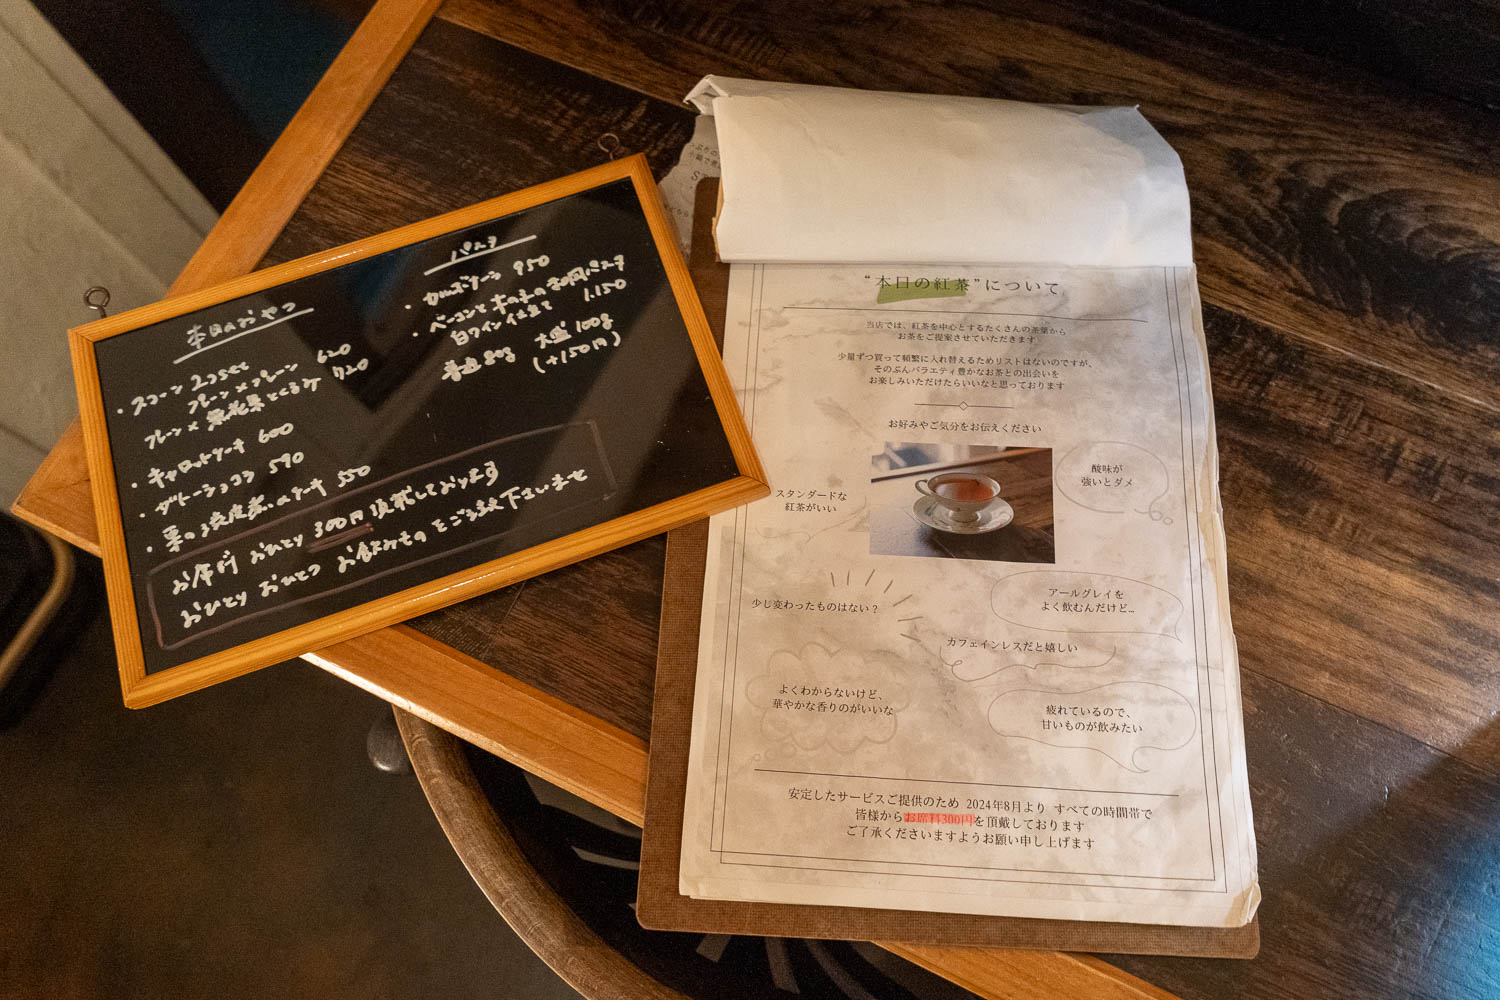 本日のおやつ
・スコーン 2つset
プレーン×プレーン 620
プレーン× 無花果とくるみ 720
・キャロットケーキ 600
・ダブルショコラ 590
・栗の渋皮煮のケーキ 550
お席料 おひとり 300円 頂戴しております
おひとり おひとつ お飲みものをご注文下さいませ
パスタ
・カルボナーラ 950
・ベーコンときのこの和風パスタ
白ワイン仕立て 1.150
普通80g 大盛100g
(+150円)
“本日の紅茶”について
当店では、紅茶を中心とするたくさんの茶葉から
お茶をご提案させていただきます
少量ずつ買って頻繁に入れ替えるためリストはないのですが、
そのぶんバラエティ豊かなお茶との出会いを
お楽しみいただけたらいいなと思っております
お好みやご気分をお伝えください
スタンダードな
紅茶がいい
酸味が
強いとダメ
少し変わったものはない？
アールグレイを
よく飲むんだけど…
カフェインレスだと嬉しい
よくわからないけど、
華やかな香りのがいいな
疲れているので、
甘いものが飲みたい
安定したサービスご提供のため 2024年8月より すべての時間帯で
皆様からお席料300円を頂戴しております
ご了承くださいますようお願い申し上げます